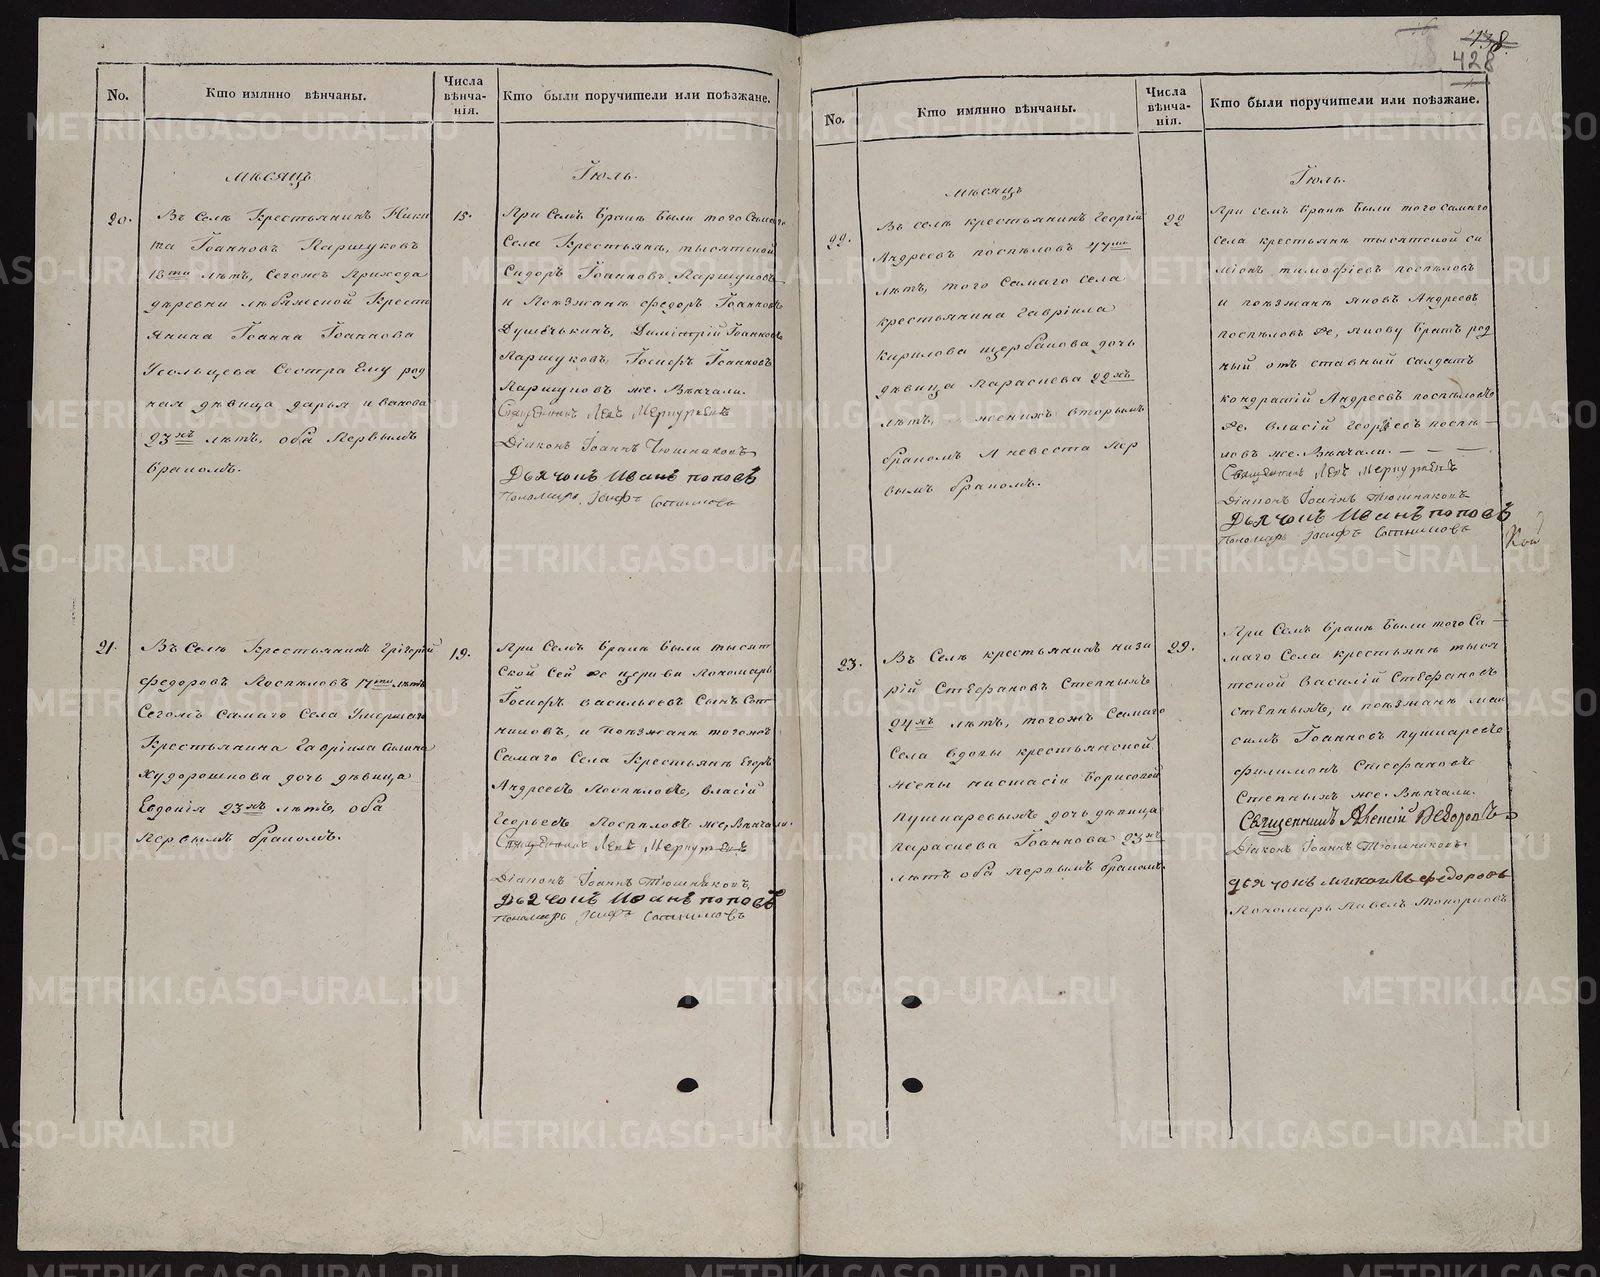 No.
Кто имянно вѣнчаны.
Числа
вѣнча-
нія.
Кто были поручители или поѣзжане.
мѣсяцъ
Іюль.
20.
Въ Селѣ Крестьянинъ Ники
та Іоанновъ Паршуковъ
18ти лѣтъ, Сегожъ Прихода
деревни Крест
янина Іоанна Іоаннова
Усольцева Сестра Ему род
ная дѣвица дарья иванова
23хъ лѣтъ, оба Первымъ
бракомъ.
15.
При Семъ бракѣ были того Самаго
Села Крестьянъ, тысятской
Сидоръ Іоанновъ Паршуковъ
и Поѣзжанъ федоръ Іоанновъ
Димітрій Іоанновъ
Паршуковъ, Іосифъ Іоанновъ
Паршуковъ же. Вѣнчали.
Священникъ Левъ Меркурьевъ
Діаконъ Іоаннъ Тюшняковъ
Дьячокъ Иванъ поповъ
Пономарь Іосифъ
21.
Въ Селѣ Крестьянинъ Григорій
федоровъ Поспѣловъ 17ти лѣтъ
Сегожъ Самаго Села Умершаго
Крестьянина Гавріила
Худорошкова дочь дѣвица
Евдокія 23хъ лѣтъ, оба
Первымъ бракомъ.
19.
При Семъ бракѣ были тысят
ской Сей же церкви Пономарь
Іосифъ васильевъ Сынъ
и Поѣзжанъ тогожъ
Самаго Села Крестьянъ Егоръ
Андреевъ Поспѣловъ, власій
Георьевъ Поспѣловъ же, Вѣнчали.
Священникъ Левъ Меркурьевъ
Діаконъ Іоаннъ Тюшняковъ
Дьячокъ Иванъ поповъ
Пономарь Іосифъ
428
No.
Кто имянно вѣнчаны.
Числа
вѣнча-
нія.
Кто были поручители или поѣзжане.
мѣсяцъ
Іюль.
22.
Въ селѣ крестьянинъ Георгій
Андреевъ поспѣловъ 47ми
лѣтъ, того Самаго села
крестьянина Гавріила
Кирилова щербакова дочь
дѣвица Параскева 22хъ
лѣтъ, женихъ вторымъ
бракомъ А невеста пер
вымъ бракомъ.
22
При семъ бракѣ были того Самаго
села крестьянъ тысятской си
міонъ тимофіевъ поспѣловъ
и поѣзжанъ яковъ Андреевъ
поспѣловъ же, якову братъ род
ный отъ ставный салдатъ
кондратій Андреевъ поспѣловъ
же власій Георьевъ поспѣ-
ловъ же. Вѣнчали. — — —
Священникъ Левъ Меркурьевъ
Діаконъ Іоаннъ Тюшняковъ
Дьячокъ Иванъ поповъ
Пономарь Іосифъ
23.
Въ Селѣ крестьянинъ
Стефановъ Степныхъ
24хъ лѣтъ, тогожъ Самаго
Села вдовы крестьянской
жены настасіи Борисовой
Пушкаревыхъ дочь дѣвица
Параскева Іоаннова 23хъ
лѣтъ оба первымъ бракомъ.
29.
При Семъ бракѣ были того Са-
маго Села крестьянъ тыся
тской Василій Стефановъ
степныхъ, и поѣзжанъ мак
симъ Іоанновъ пушкаревъ
филимонъ Стефановъ
Степныхъ же. Вѣнчали.
Священникъ Алексій Ѳедоровъ
Діаконъ Іоаннъ Тюшняковъ.
Дьячокъ федоровъ
Пономарь Павелъ Топорковъ
METRIKI.GASO-URAL.RU